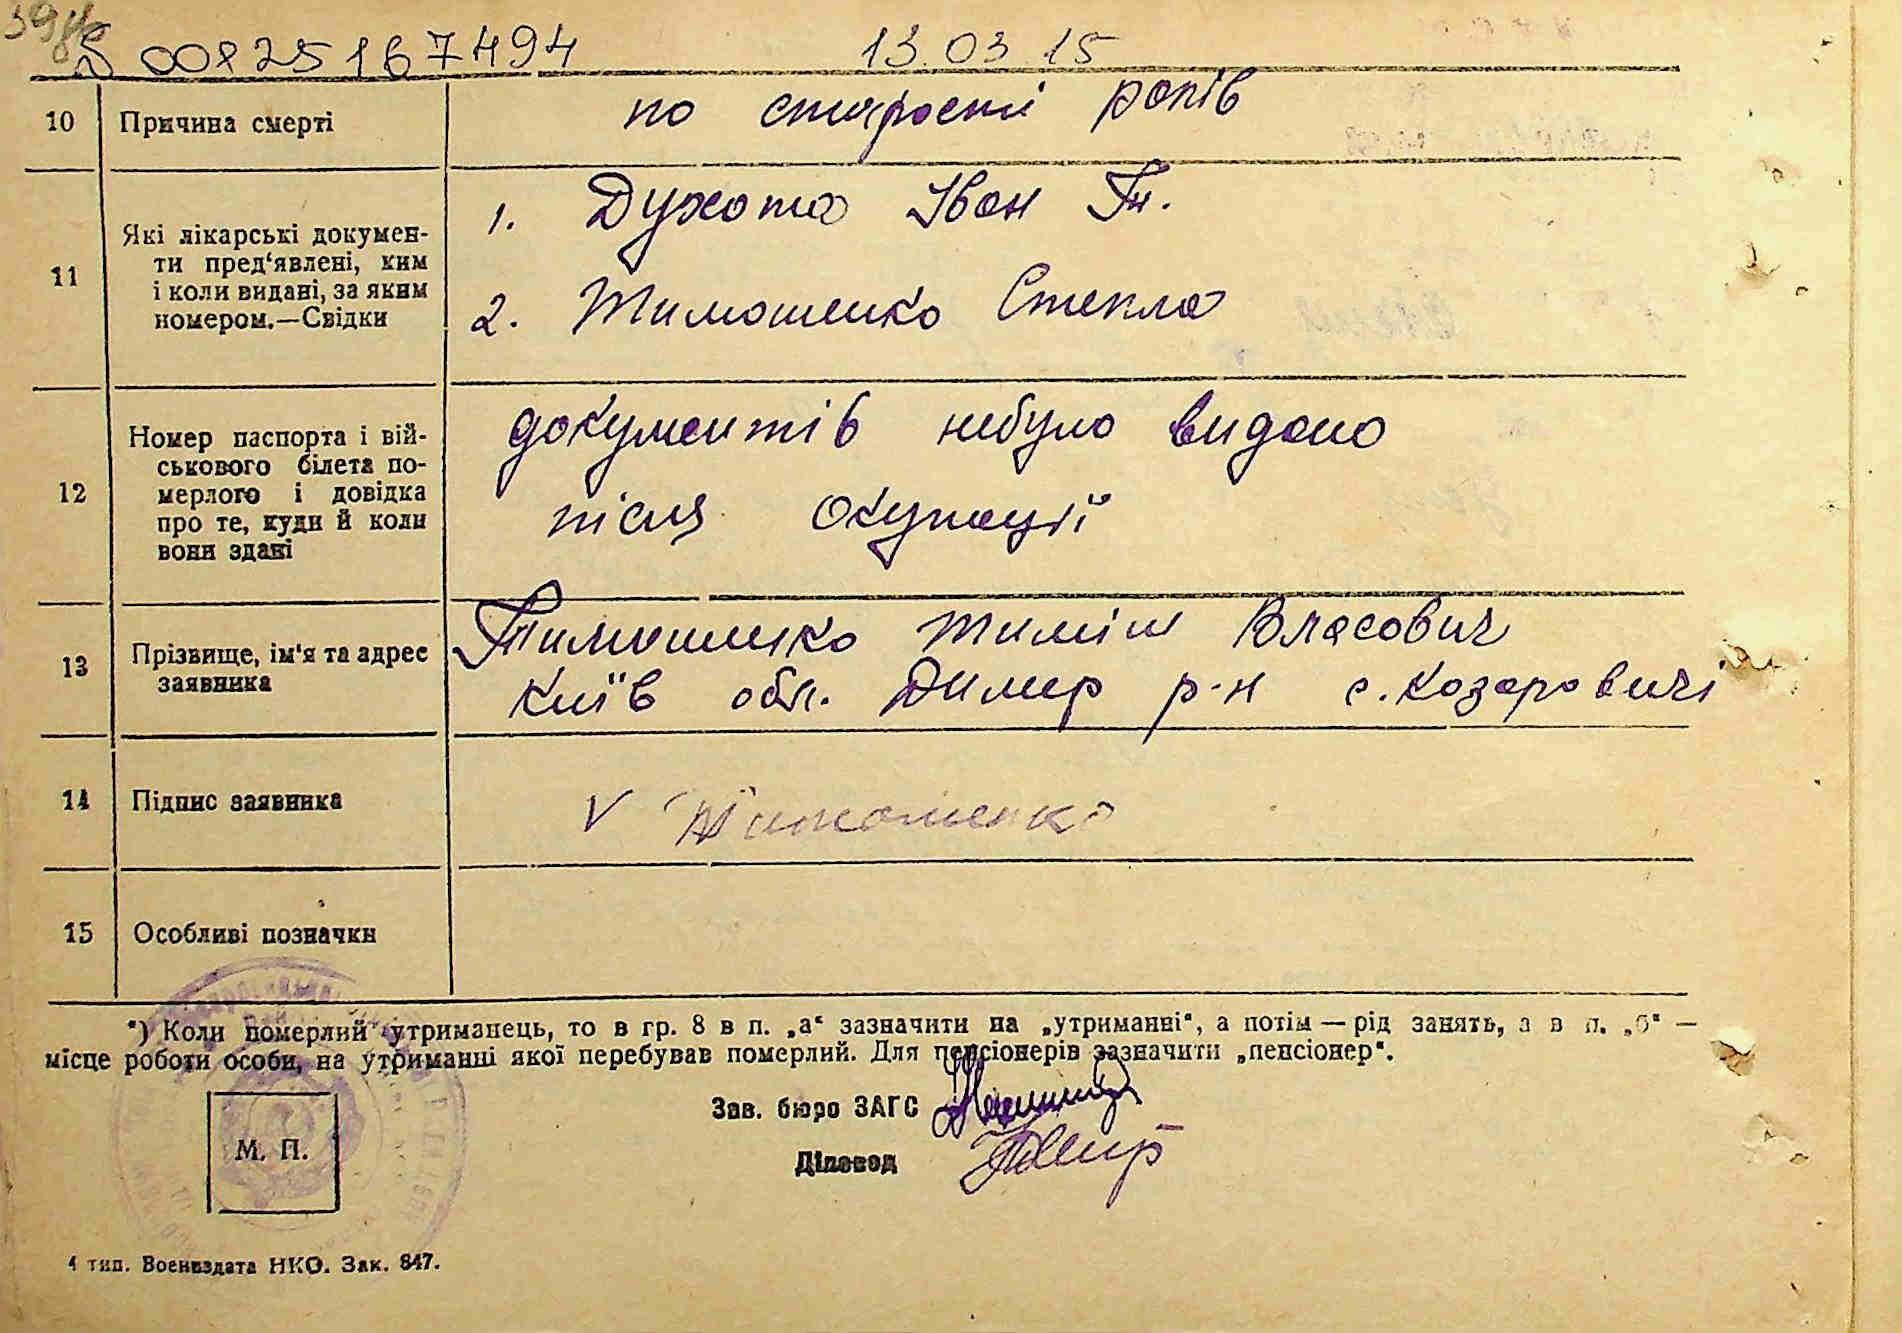 00825167494 13.03.15
10 Причина смерті по старости років
11 Які лікарські докумен-
ти пред'явлені, ким
і коли видані, за яким
номером.—Свідки
1. Духота Іван Гн.
2. Тимошенко Степла
12 Номер паспорта і вій-
ськового білета по-
мерлого і довідка
про те, куди й коли
вони здані
документів небуло видано
після окупації
13 Прізвище, ім'я та адрес
заявника
Тимошенко Тиміш Власович
Київ обл. Димер р-н с. Козаровичі
14 Підпис заявника V Тимошенко
15 Особливі позначки
*) Коли померлий утриманець, то в гр. 8 в п. „а“ зазначити на „утриманні“, а потім — рід занять, а в п. „б“ —
місце роботи особи, на утриманні якої перебував померлий. Для пенсіонерів зазначити „пенсіонер“.
Зав. бюро ЗАГС
Діловод
М. П.
4 тип. Воениздата НКО. Зак. 847.